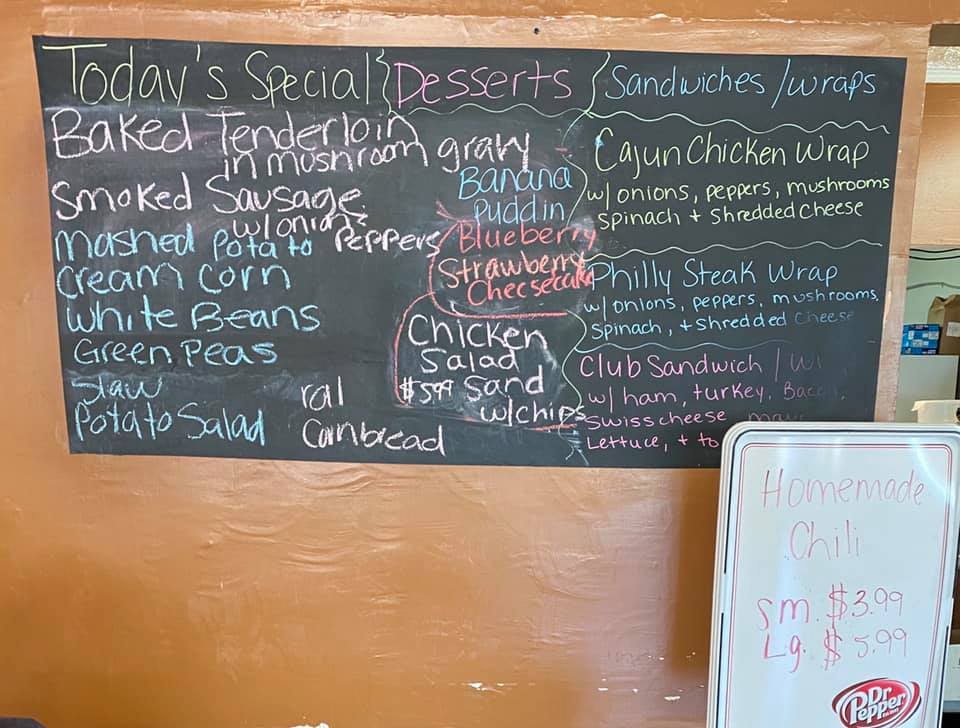 Today's Special
Baked Tenderloin
in mushroom gravy
Smoked Sausage
w/onions
Peppers
Mashed Potato
Cream Corn
White Beans
Green Peas
Slaw
Potato Salad
Cornbread
Desserts
Banana
Puddin
Blueberry
Strawberry
Cheesecake
Chicken
Salad
$5.99 Sand
w/chips
Sandwiches / wraps
Cajun Chicken Wrap
w/ onions, peppers, mushrooms
spinach + shredded cheese
Philly Steak Wrap
w/ onions, peppers, mushrooms,
spinach, + shredded cheese
Club Sandwich /
w/ ham, turkey,
Swiss cheese
Lettuce, + to
Homemade
Chili
sm. $3.99
Lg. $5.99
Dr
Pepper